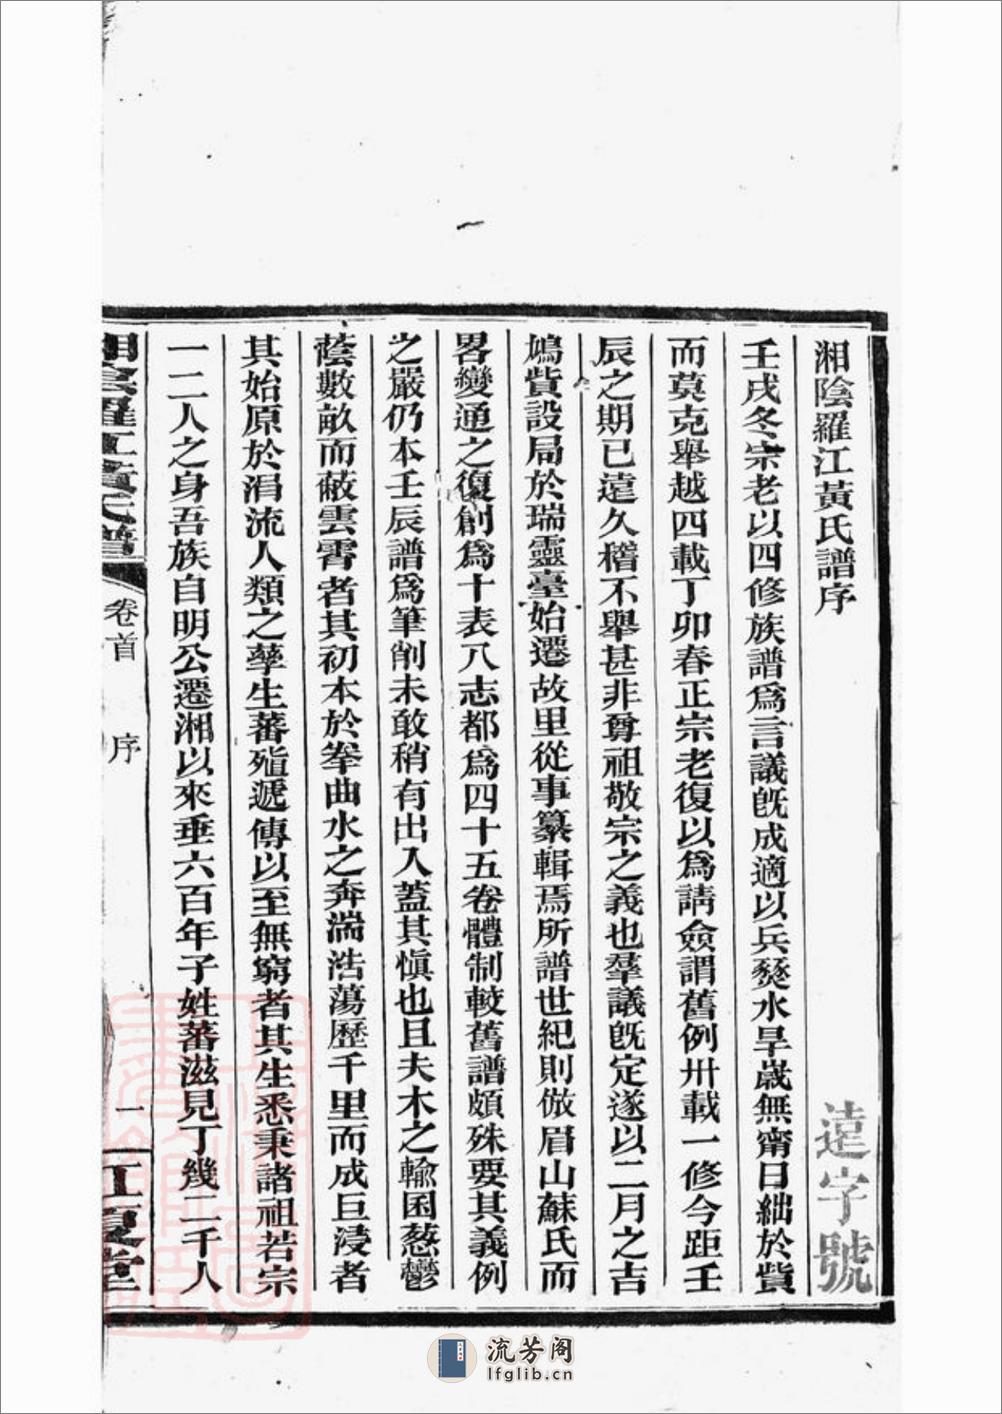 湘陰羅江黃氏譜序
遠字號
壬戌冬宗老以四修族譜爲言議旣成適以兵燹水旱嵗無甯日絀於貲
而莫克舉越四載丁卯春正宗老復以爲請僉謂舊例卅載一修今距壬
辰之期已遠久稽不舉甚非尊祖敬宗之義也羣議旣定遂以二月之吉
鳩貲設局於瑞靈臺始遷故里從事纂輯焉所譜世紀則倣眉山蘇氏而
畧變通之復創爲十表八志都爲四十五卷體制較舊譜頗殊要其義例
之嚴仍本壬辰譜爲筆削未敢稍有出入蓋其愼也且夫木之輪囷葱鬱
蔭數畝而蔽雲霄者其初本於拳曲水之奔湍浩蕩歷千里而成巨浸者
其始原於涓流人類之孳生蕃殖遞傳以至無窮者其生悉秉諸祖若宗
一二人之身吾族自明公遷湘以來垂六百年子姓蕃滋見丁幾二千人
湘陰羅江黃氏譜
卷首
序
一
江夏堂
流芳阁
lfglib.cn